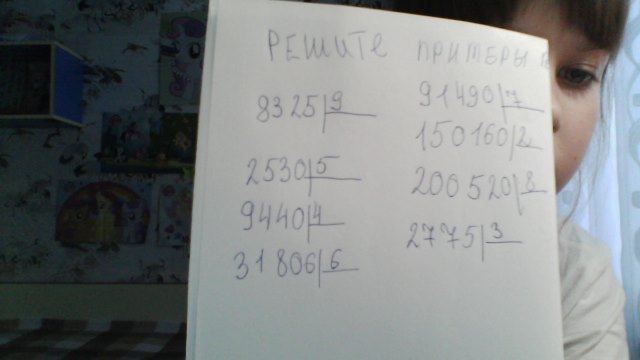 РЕШИТЕ ПРИМЕРЫ
8325 9
2530 5
9440 4
31806 6
91490 7
150160 2
200520 8
2775 3